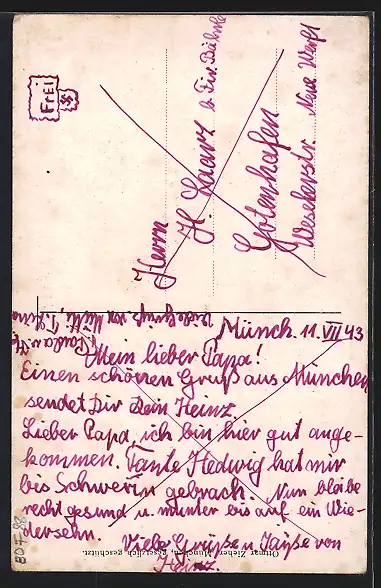 Frei
Herrn
H. Laarz b. Fir. Bäcker
Gotenhafen
Weseler str. Neue Werft
Viele Grüße von Mutti, Tante
Paula u.
Münch. 11. VII 43
Mein lieber Papa!
Einen schönen Gruß aus München
sendet Dir Dein Heinz.
Lieber Papa, ich bin hier gut ange-
kommen. Tante Hedwig hat mir
bis Schwerin gebrach. Nun bleibe
recht gesund u. munter bis auf ein Wie-
dersehn.
Viele Grüße u. Küße von
Heinz.
Ottmar Zieher, München, gesetzlich geschützt.